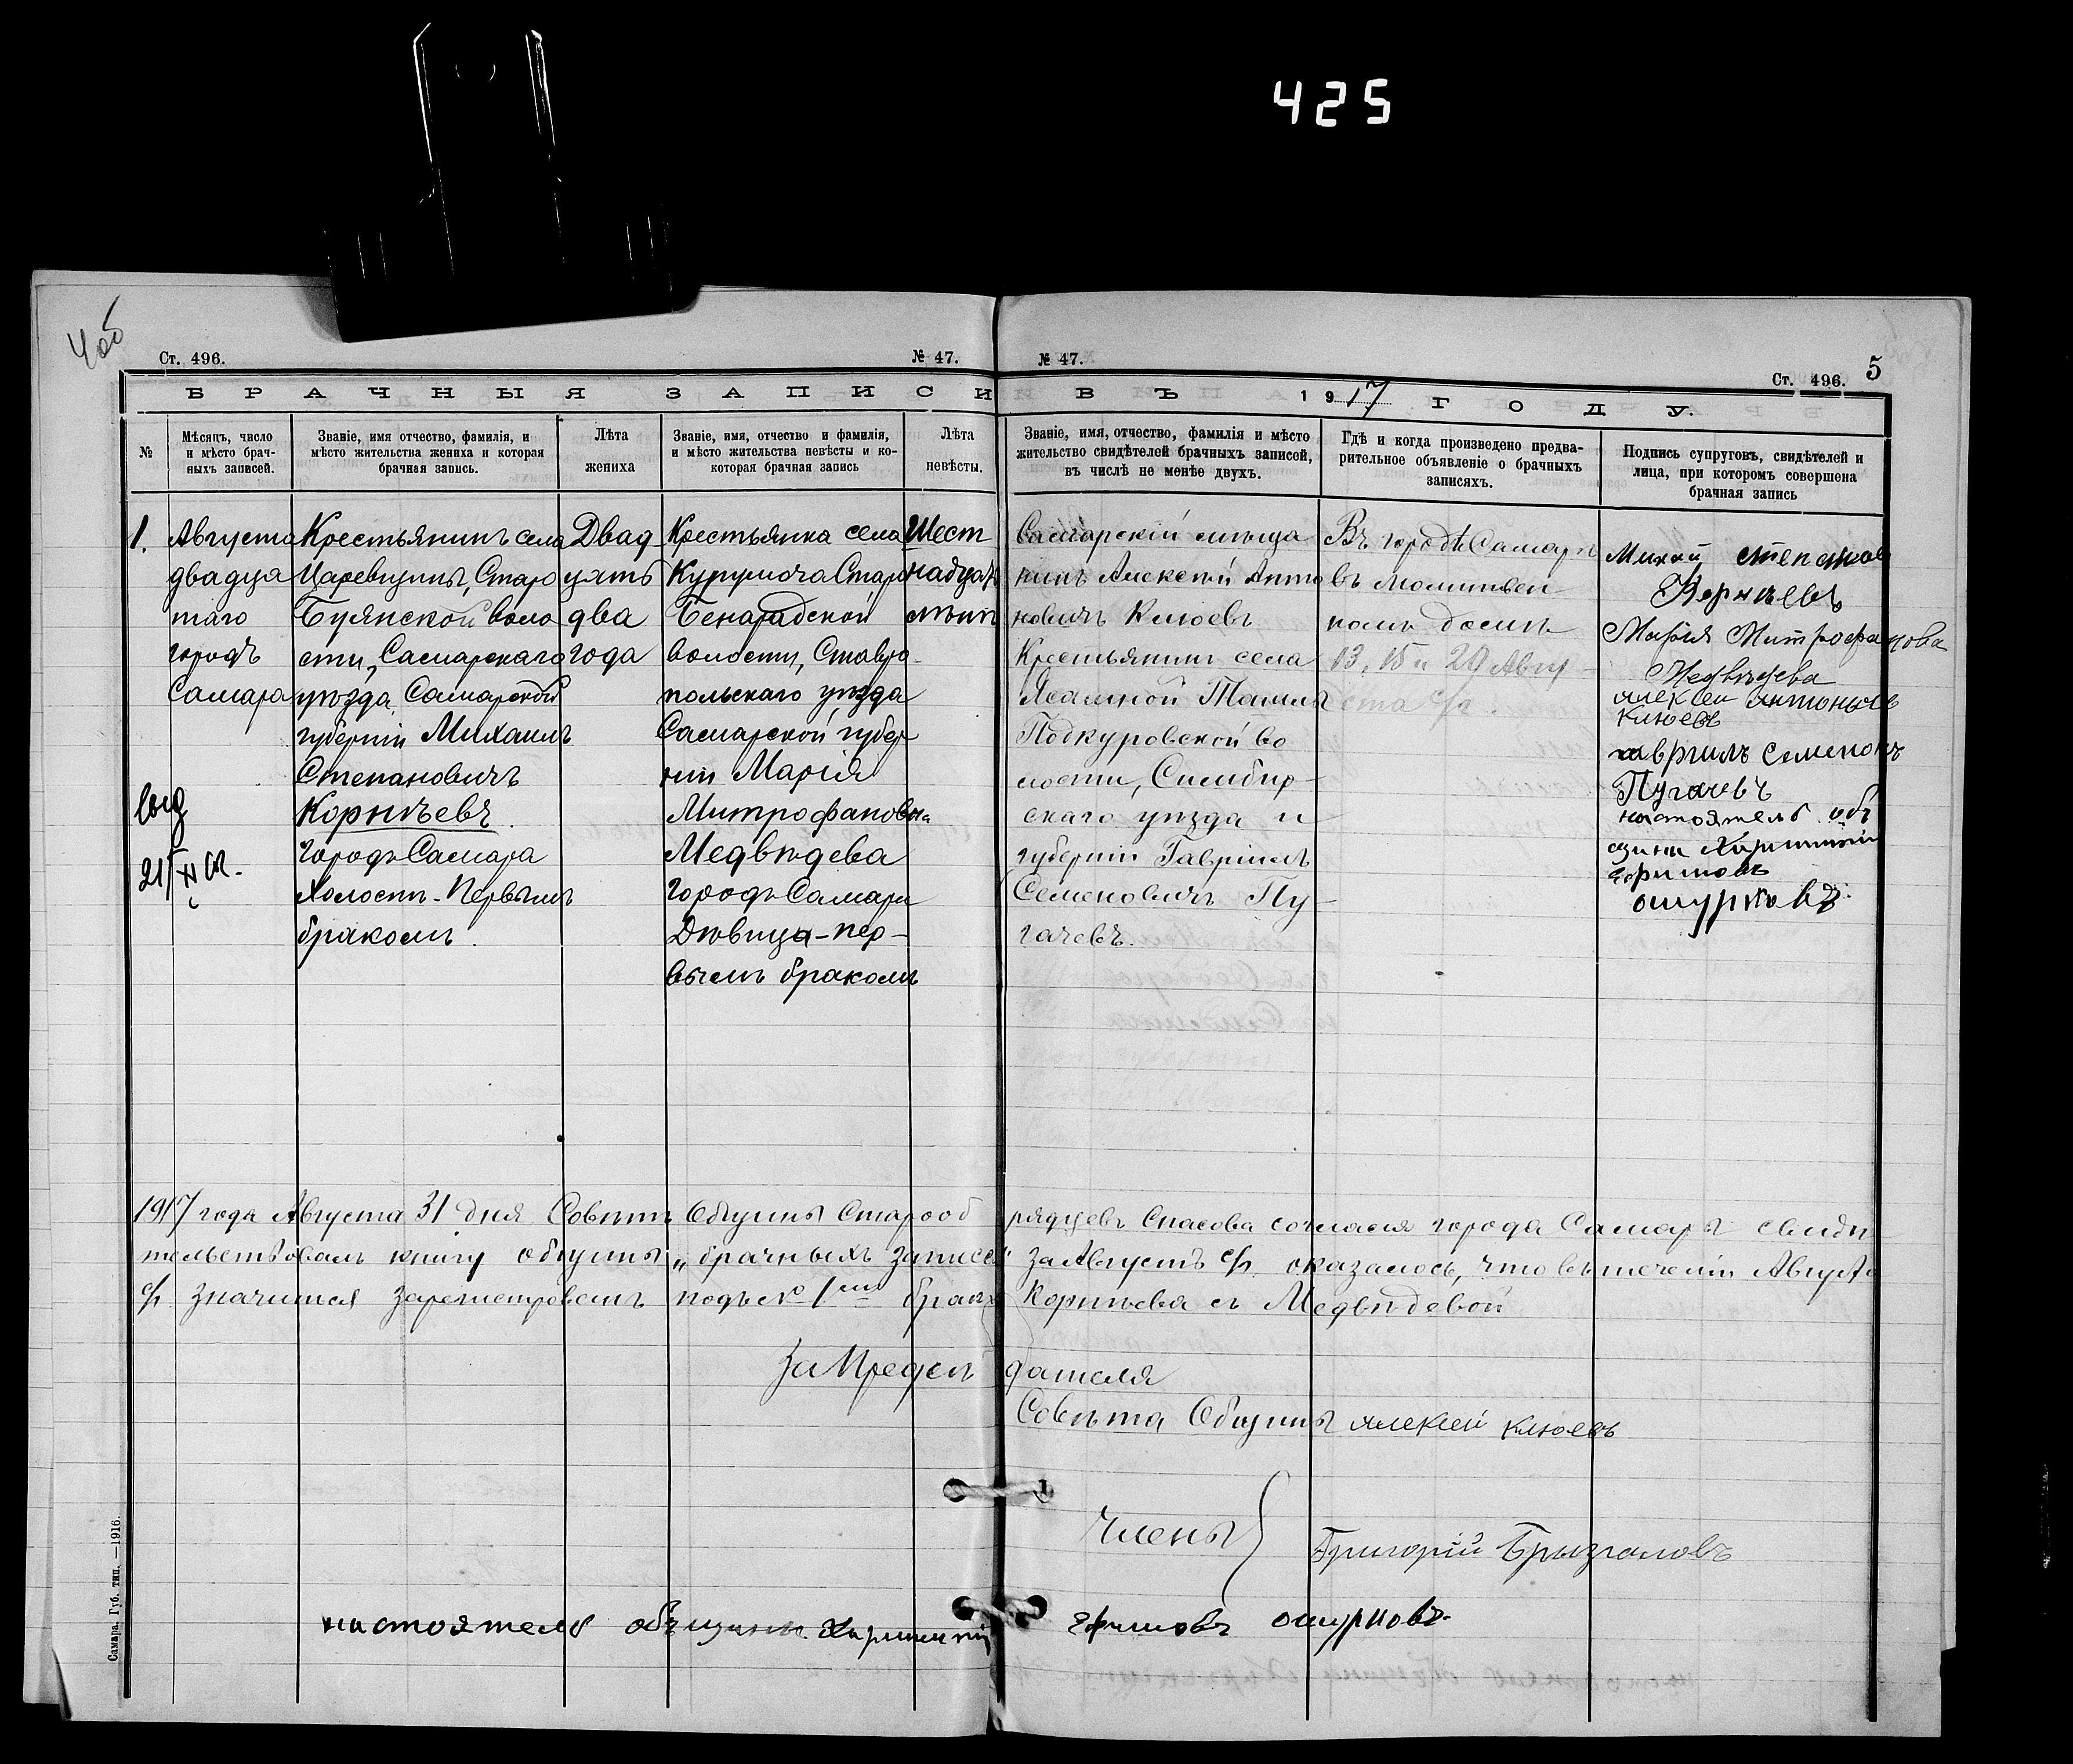 425
4об
Ст. 496.
№ 47.
№ 47.
Ст. 496.
5
БРАЧНЫЯ ЗАПИСИ ВЪ 1917 ГОДУ.
№
Мѣсяцъ, число
и мѣсто брач-
ныхъ записей.
Званіе, имя отчество, фамилія, и
мѣсто жительства жениха и которая
брачная запись.
Лѣта
жениха
Званіе, имя, отчество и фамилія,
и мѣсто жительства невѣсты и ко-
которая брачная запись
Лѣта
невѣсты.
Званіе, имя, отчество, фамилія и мѣсто
жительство свидѣтелей брачныхъ записей,
въ числѣ не менѣе двухъ.
Гдѣ и когда произведено предва-
рительное объявленіе о брачныхъ
записяхъ.
Подпись супруговъ, свидѣтелей и
лица, при которомъ совершена
брачная запись
1.
Августа
двадца
таго
городъ
Самара
выд
21/XI
Крестьянинъ села
Царевщины, Старо
Буянской воло
сти, Самарскаго
уѣзда Самарской
губерніи Михаилъ
Степановичъ
Корнѣевъ.
городъ Самара
Холостъ - Первымъ
бракомъ.
Двад
цать
два
года
Крестьянка села
Курумоча Старо
Бенарадской
волости, Ставро-
польскаго уѣзда
Самарской губер
ніи Марія
Митрофановна
Медвѣдева
городъ Самара
Дѣвица - пер-
вымъ бракомъ
Шест
надцать
лѣтъ
Самарскій мѣща
нинъ Алексѣй Анто
новичъ Клюевъ
Крестьянинъ села
Ясашной Ташлы
Подкуровской во
лости, Симбир-
скаго уѣзда и
губерніи Гавріилъ
Семеновичъ Пу-
гачевъ.
Въ городѣ Самарѣ
въ молитвен
номъ домѣ
13, 15 и 20 Авгу-
ста с/г.
Михаил Степанов
Корнѣевъ
Мария Митрофанова
Медвѣдева
алексеи антоновъ
Клюевъ
гавриилъ семеновъ
Пугачевъ
настоятель об
щины Харитонiй
Ефимовъ
ошурковъ
1917 года Августа 31 дня Совѣтъ Общины Старооб рядцевъ Спасова согласія города Самары свидѣ
тельствовалъ книгу общины „брачныхъ записей" за Августъ с/г. оказалось, что въ теченіи Августа
с/г. значится зарегистрованъ подъ № 1мъ бракъ Корнѣева съ Медвѣдевой
За Предсѣ дателя
Совѣта Общины алексей клюевъ
Члены
Григорій Брызгаловъ
настоятель общины Ефимовъ ошурковъ
Самара, Губ. тип. —1916.